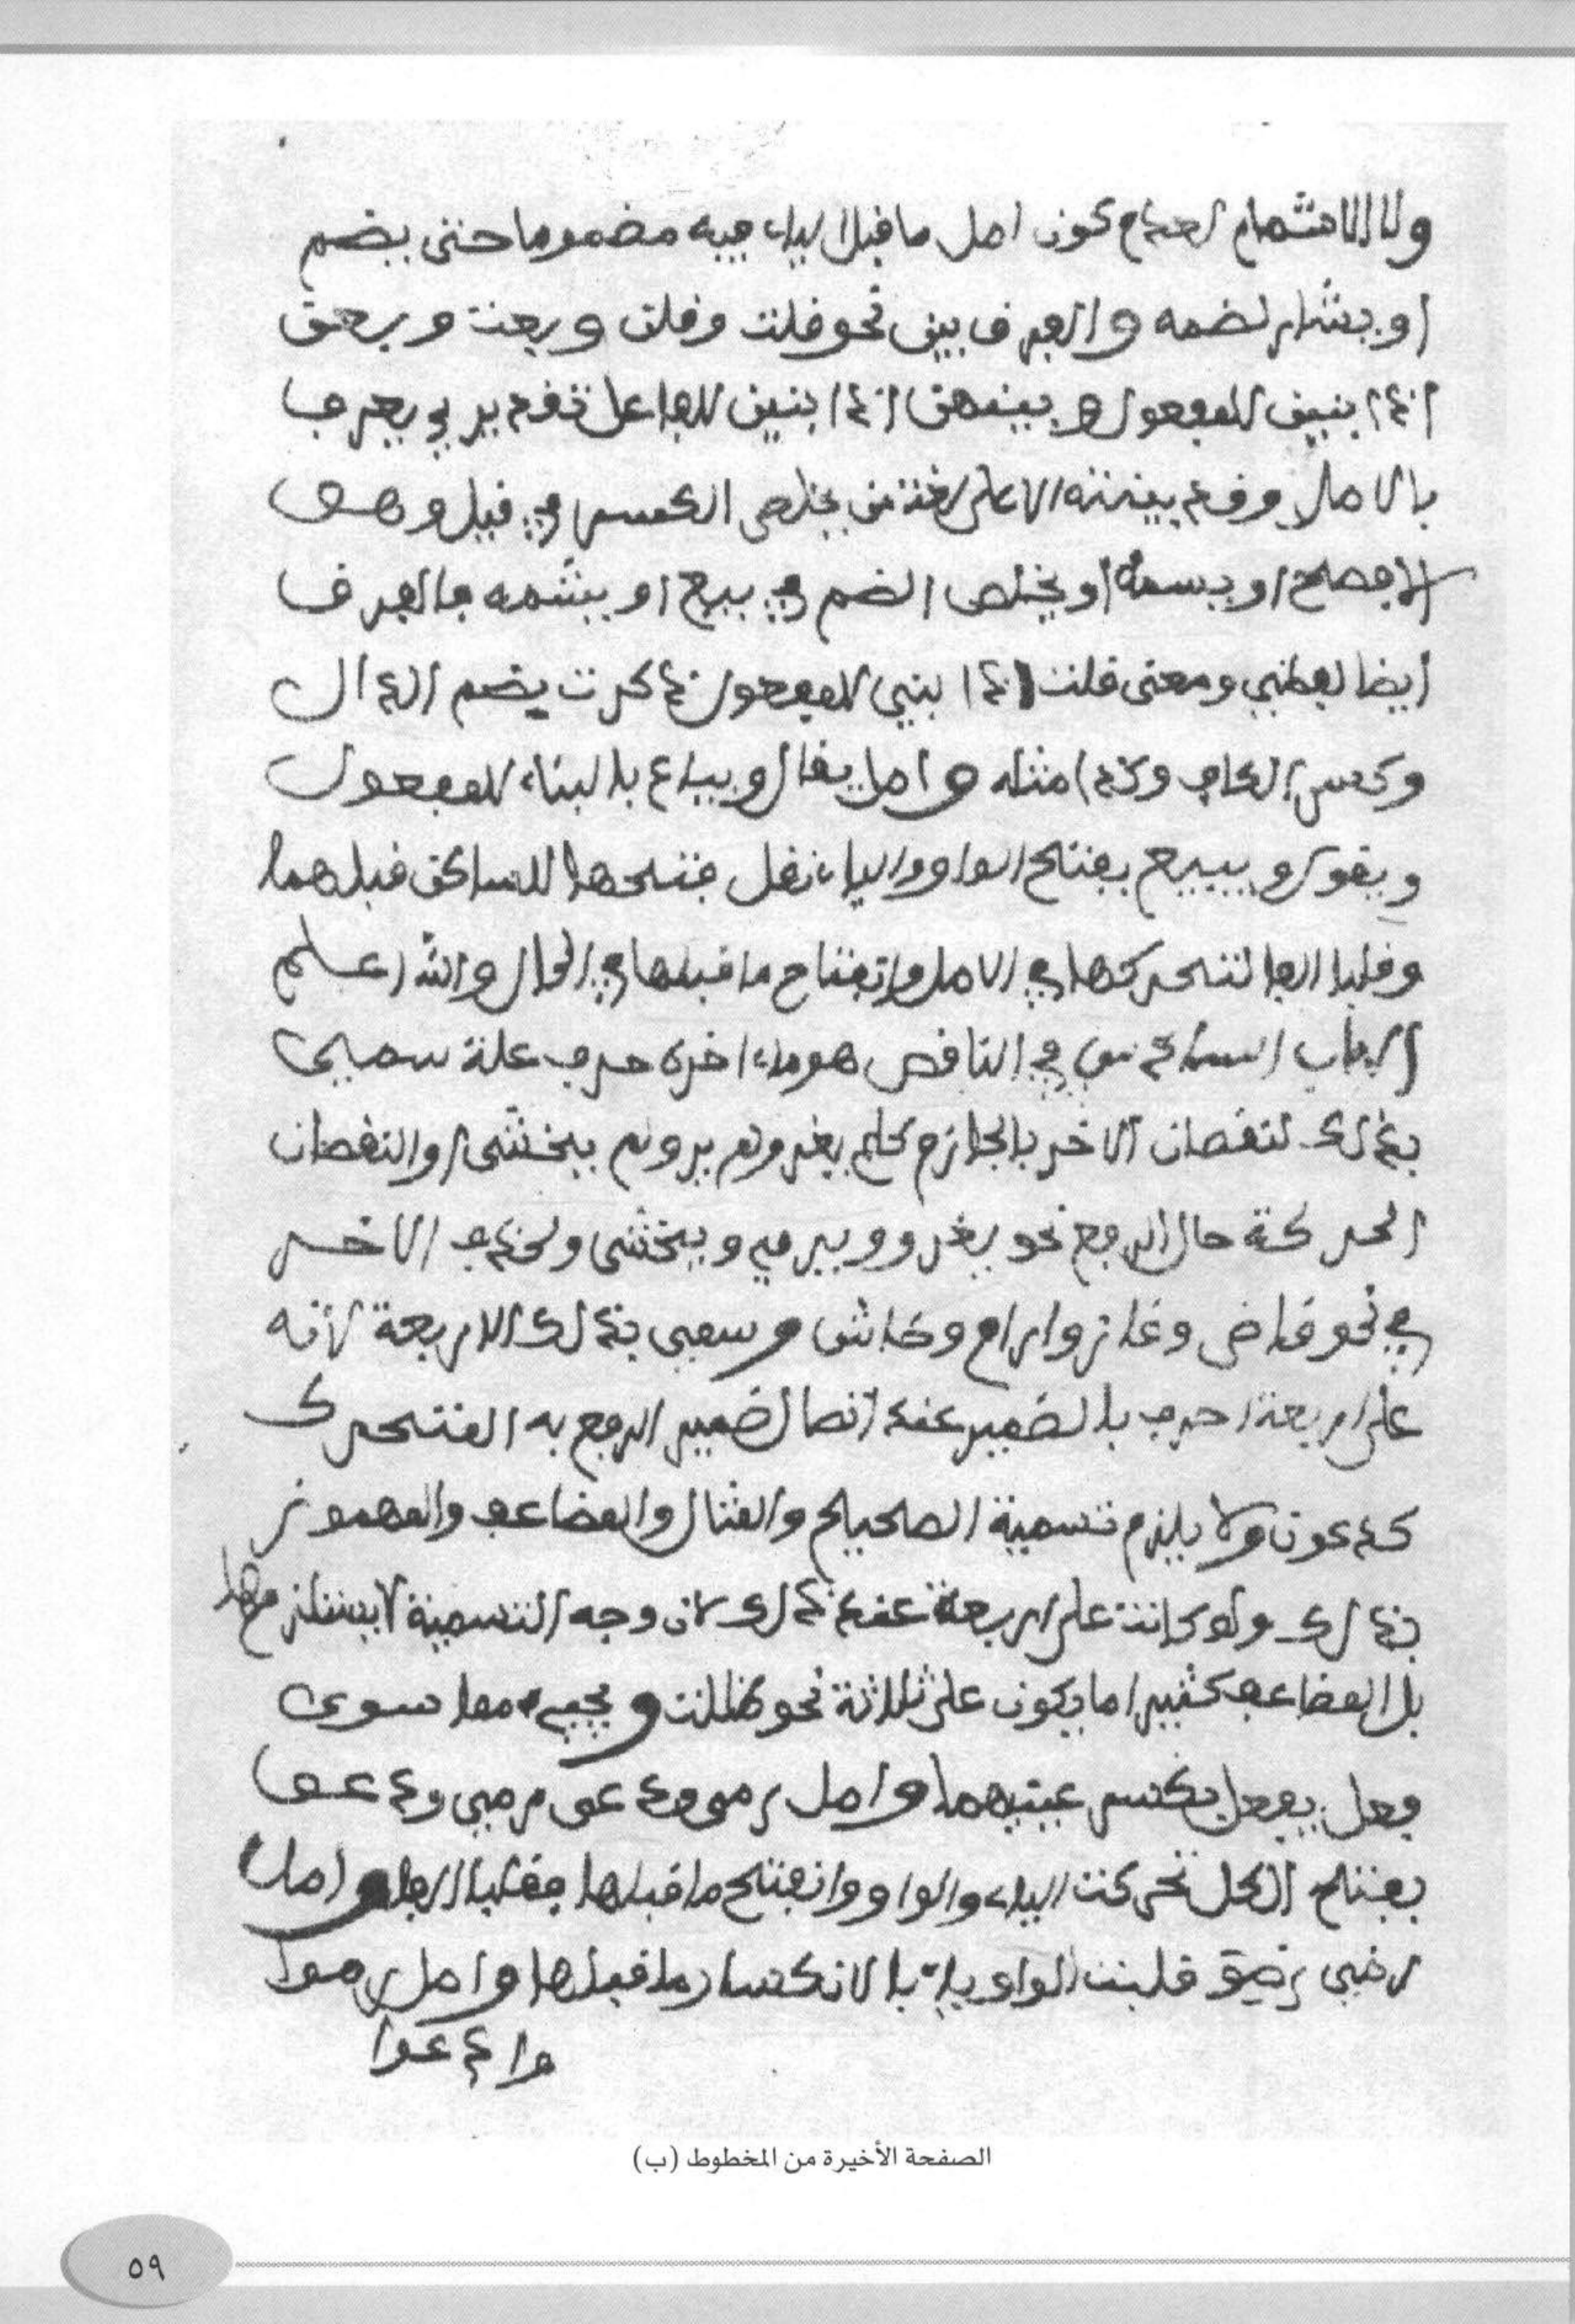 ولا الاشمام لعدم كون اصل ما قبل الياء فيه مضموما حتى يضم
او يشار لضمه والفرق بين نحو قلت وقلن وبعت وبعن
اذا بنين للمفعول وبينهن اذا بنين للفاعل تقديري يعرف
بالاصل وقد بينته الا على لغة من يخلص الكسر في قيل وهو
الافصح او يسمه او يخلص الضم في بيع او يشمه فالفرق
ايضا لفظي ومعنى قلت اذا بني للمفعول ذكرت بضم الذال
وكسر الكاف وكذا مثله واصل يقال ويباع بالبناء للمفعول
ويقول ويبيع بفتح الواو والياء نقل فتحها للساكن قبلهما
وقلبا الفا لتحركها في الاصل وانفتاح ما قبلها في الحال والله اعلم
الباب السادس في الناقص هو ما ءاخره حرف علة سمي
بذلك لنقصان الاخر بالجازم كلم يغز ولم يرم ولم يخش او النقصان
الحركة حال الرفع نحو يغزو ويرمي ويخشى ولحذف الاخر
في نحو قاض وغاز وارام وخاش وسمي بذلك الاربعة لأنه
على اربعة احرف بالضمير عند اتصال ضمير الرفع به المتحرك
كدعوت ولا يلزم تسمية الصحيح والمثال والمضاعف والمهموز
بذلك ولو كانت على اربعة عند ذلك لان وجه التسمية لا يستلزمها
بل المضاعف كثيرا ما يكون على ثلاثة نحو ظلت ويجيء مما سوى
فعل يفعل بكسر عينيهما واصل رمى ودعى رمي ودعو
بفتح الكل تحركت الياء والواو وانفتح ما قبلها فقلبا الفا واصل
رضي رضو قلبت الواو ياء بالانكسار ما قبلها واصل رموا
وادعوا
الصفحة الأخيرة من المخطوط (ب)
٥٩